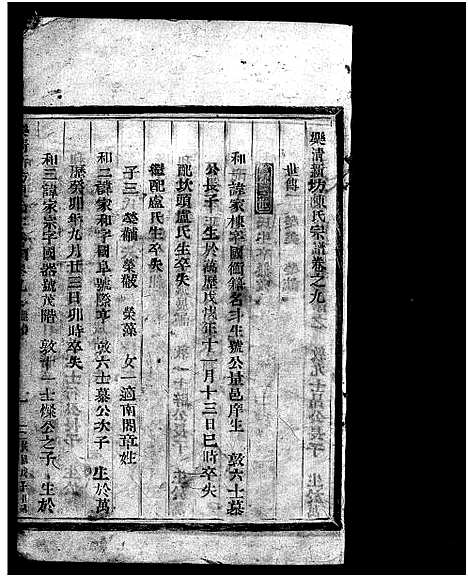 樂清新坊陳氏宗譜卷之九
世傳
和一諱家樓字國衡錫名斗生號公量邑庠生 敦六士墓
公長子 生於萬歷戊戌年十一月十三日巳時卒失
配坎頭盧氏生卒失
繼配盧氏生卒失
子三 榮黼 榮黻 榮藻 女一適南閣章姓
和二諱家和字國 號 亭 敦六士墓公次子 生於萬
歷癸卯年九月廿三日卯時卒失
和三諱家宗字國器號茂階 敦 士 公之子 生於